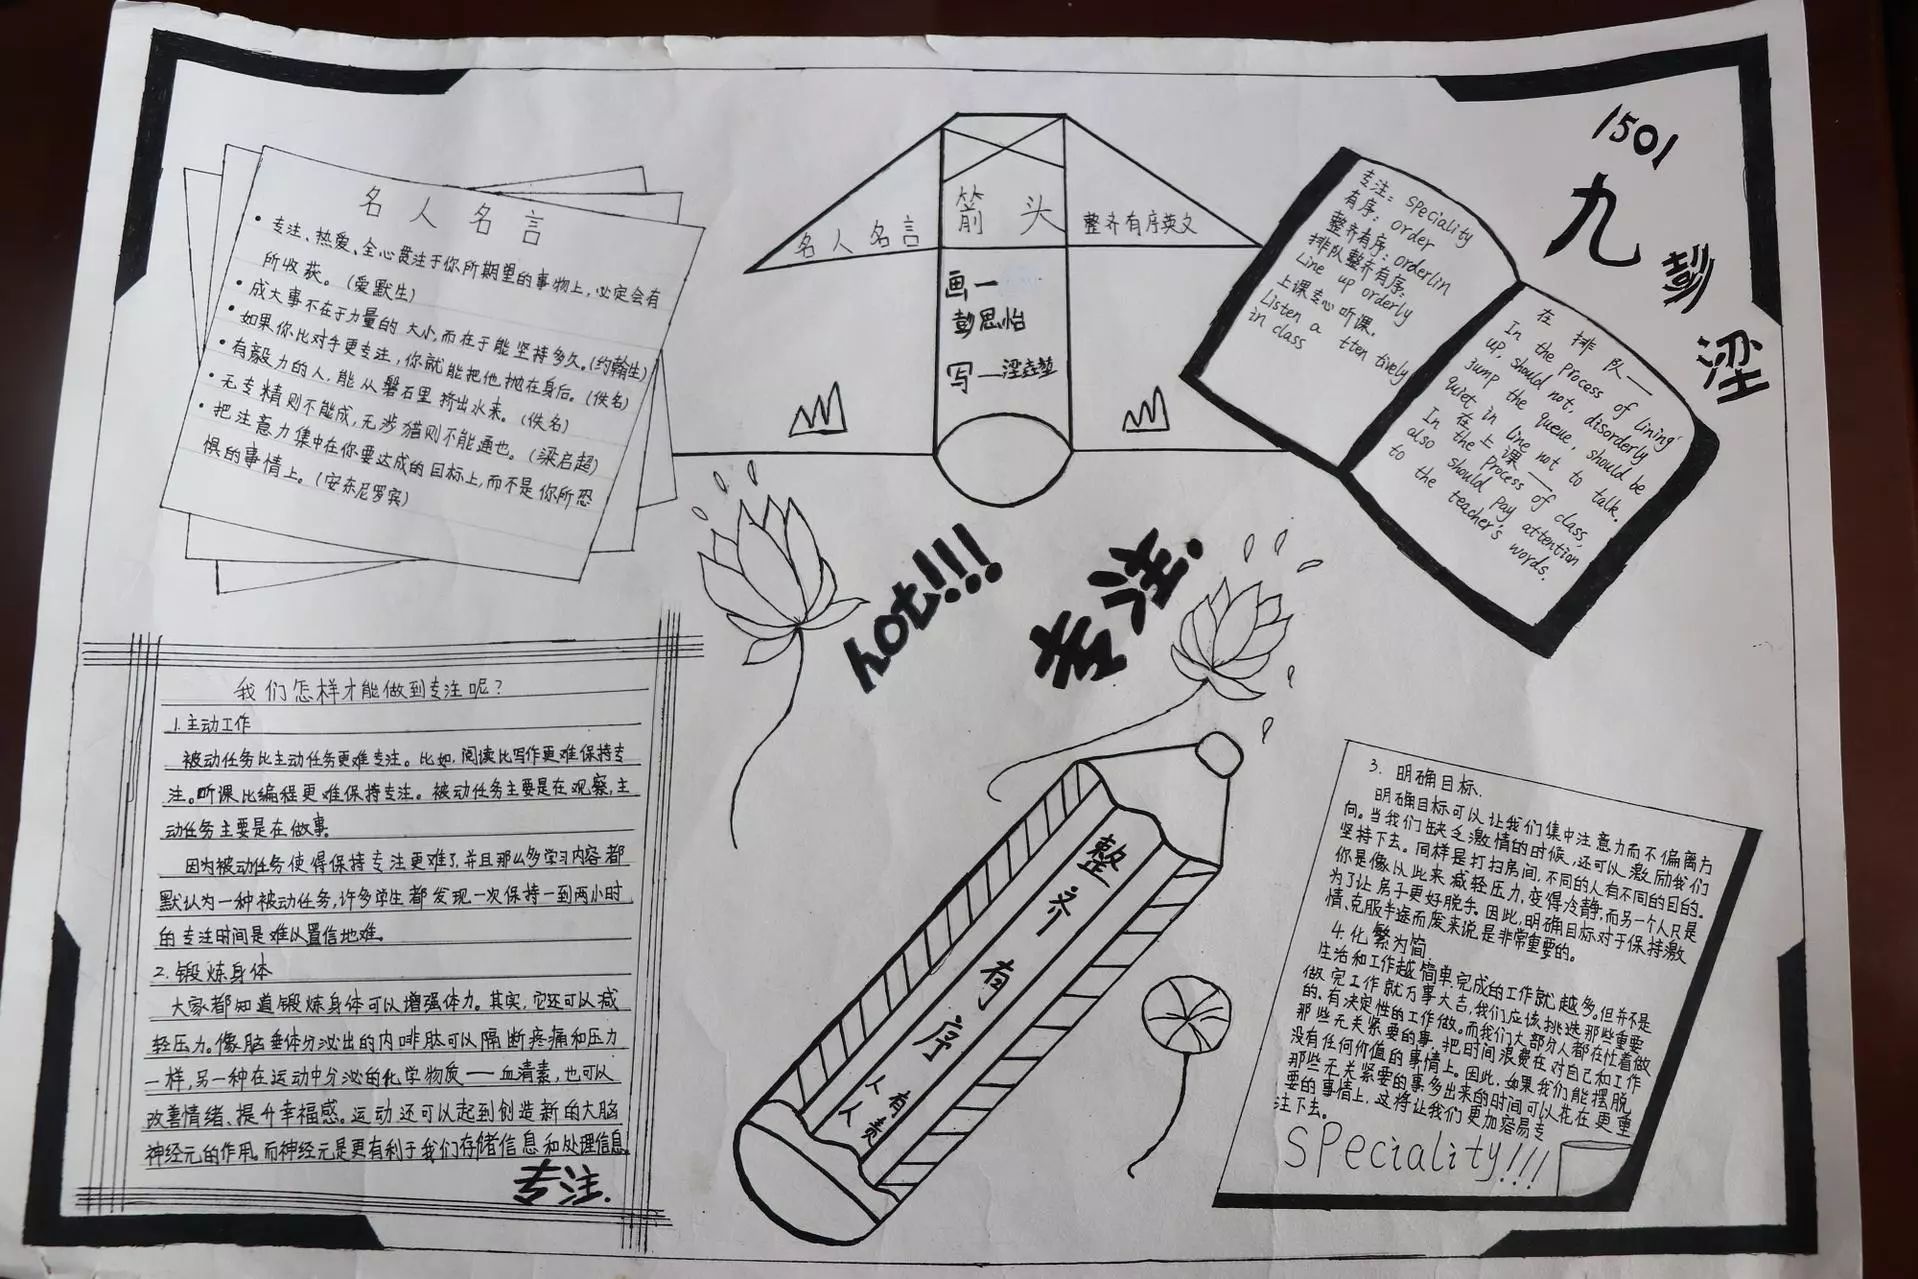 名人名言
• 专注、热爱、全心贯注于你所期望的事物上，必定会有
所收获。(爱默生)
• 成大事不在于力量的大小，而在于能坚持多久。(约翰生)
• 如果你比对手更专注，你就能把他抛在身后。(佚名)
• 有毅力的人，能从磐石里挤出水来。(佚名)
• 无专精则不能成，无涉猎则不能通也。(梁启超)
• 把注意力集中在你要达成的目标上，而不是你所恐
惧的事情上。(安东尼罗宾)
箭头
名人名言
整齐有序英文
画一
彭思怡
写一
专注：speciality
有序：order
整齐有序：orderlin
排队整齐有序：
Line up orderly
上课专心听课．
Listen a tten tively
in class
在排队—
In the process of lining
up, should not, disorderly
jump the queue, should be
quiet in line not to talk.
在上课—
In the process of class,
also should pay attention
to the teacher's words.
1501
九
彭
hot!!!
专注．
我们怎样才能做到专注呢？
1.主动工作
被动任务比主动任务更难专注。比如，阅读比写作更难保持专
注。听课比编程更难保持专注。被动任务主要是在观察，主
动任务主要是在做事．
因为被动任务使得保持专注更难了，并且那么多学习内容都
默认为一种被动任务，许多学生都发现一次保持一到两小时
的专注时间是难以置信地难。
2.锻炼身体
大家都知道锻炼身体可以增强体力。其实，它还可以减
轻压力。像脑垂体分泌出的内啡肽可以隔断疼痛和压力
一样，另一种在运动中分泌的化学物质——血清素，也可以
改善情绪、提升幸福感。运动还可以起到创造新的大脑
神经元的作用。而神经元是更有利于我们存储信息和处理信息．
专注．
整齐有序
人人有责
3．明确目标．
明确目标可以让我们集中注意力而不偏离方
向。当我们缺乏激情的时候，还可以激励我们
坚持下去。同样是打扫房间，不同的人有不同的目的．
你是像以此来减轻压力，变得冷静，而另一个人只是
为了让房子更好脱手。因此，明确目标对于保持激
情、克服半途而废来说是非常重要的。
4．化繁为简．
生活和工作越简单，完成的工作就越多。但并不是
做完工作就万事大吉，我们应该挑选那些重要
的、有决定性的工作做。而我们大部分人都在忙着做
那些无关紧要的事，把时间浪费在对自己和工作
没有任何价值的事情上。因此，如果我们能摆脱
那些无关紧要的事，多出来的时间可以花在更重
要的事情上，这将让我们更加容易专
注下去。
SPeciality!!!